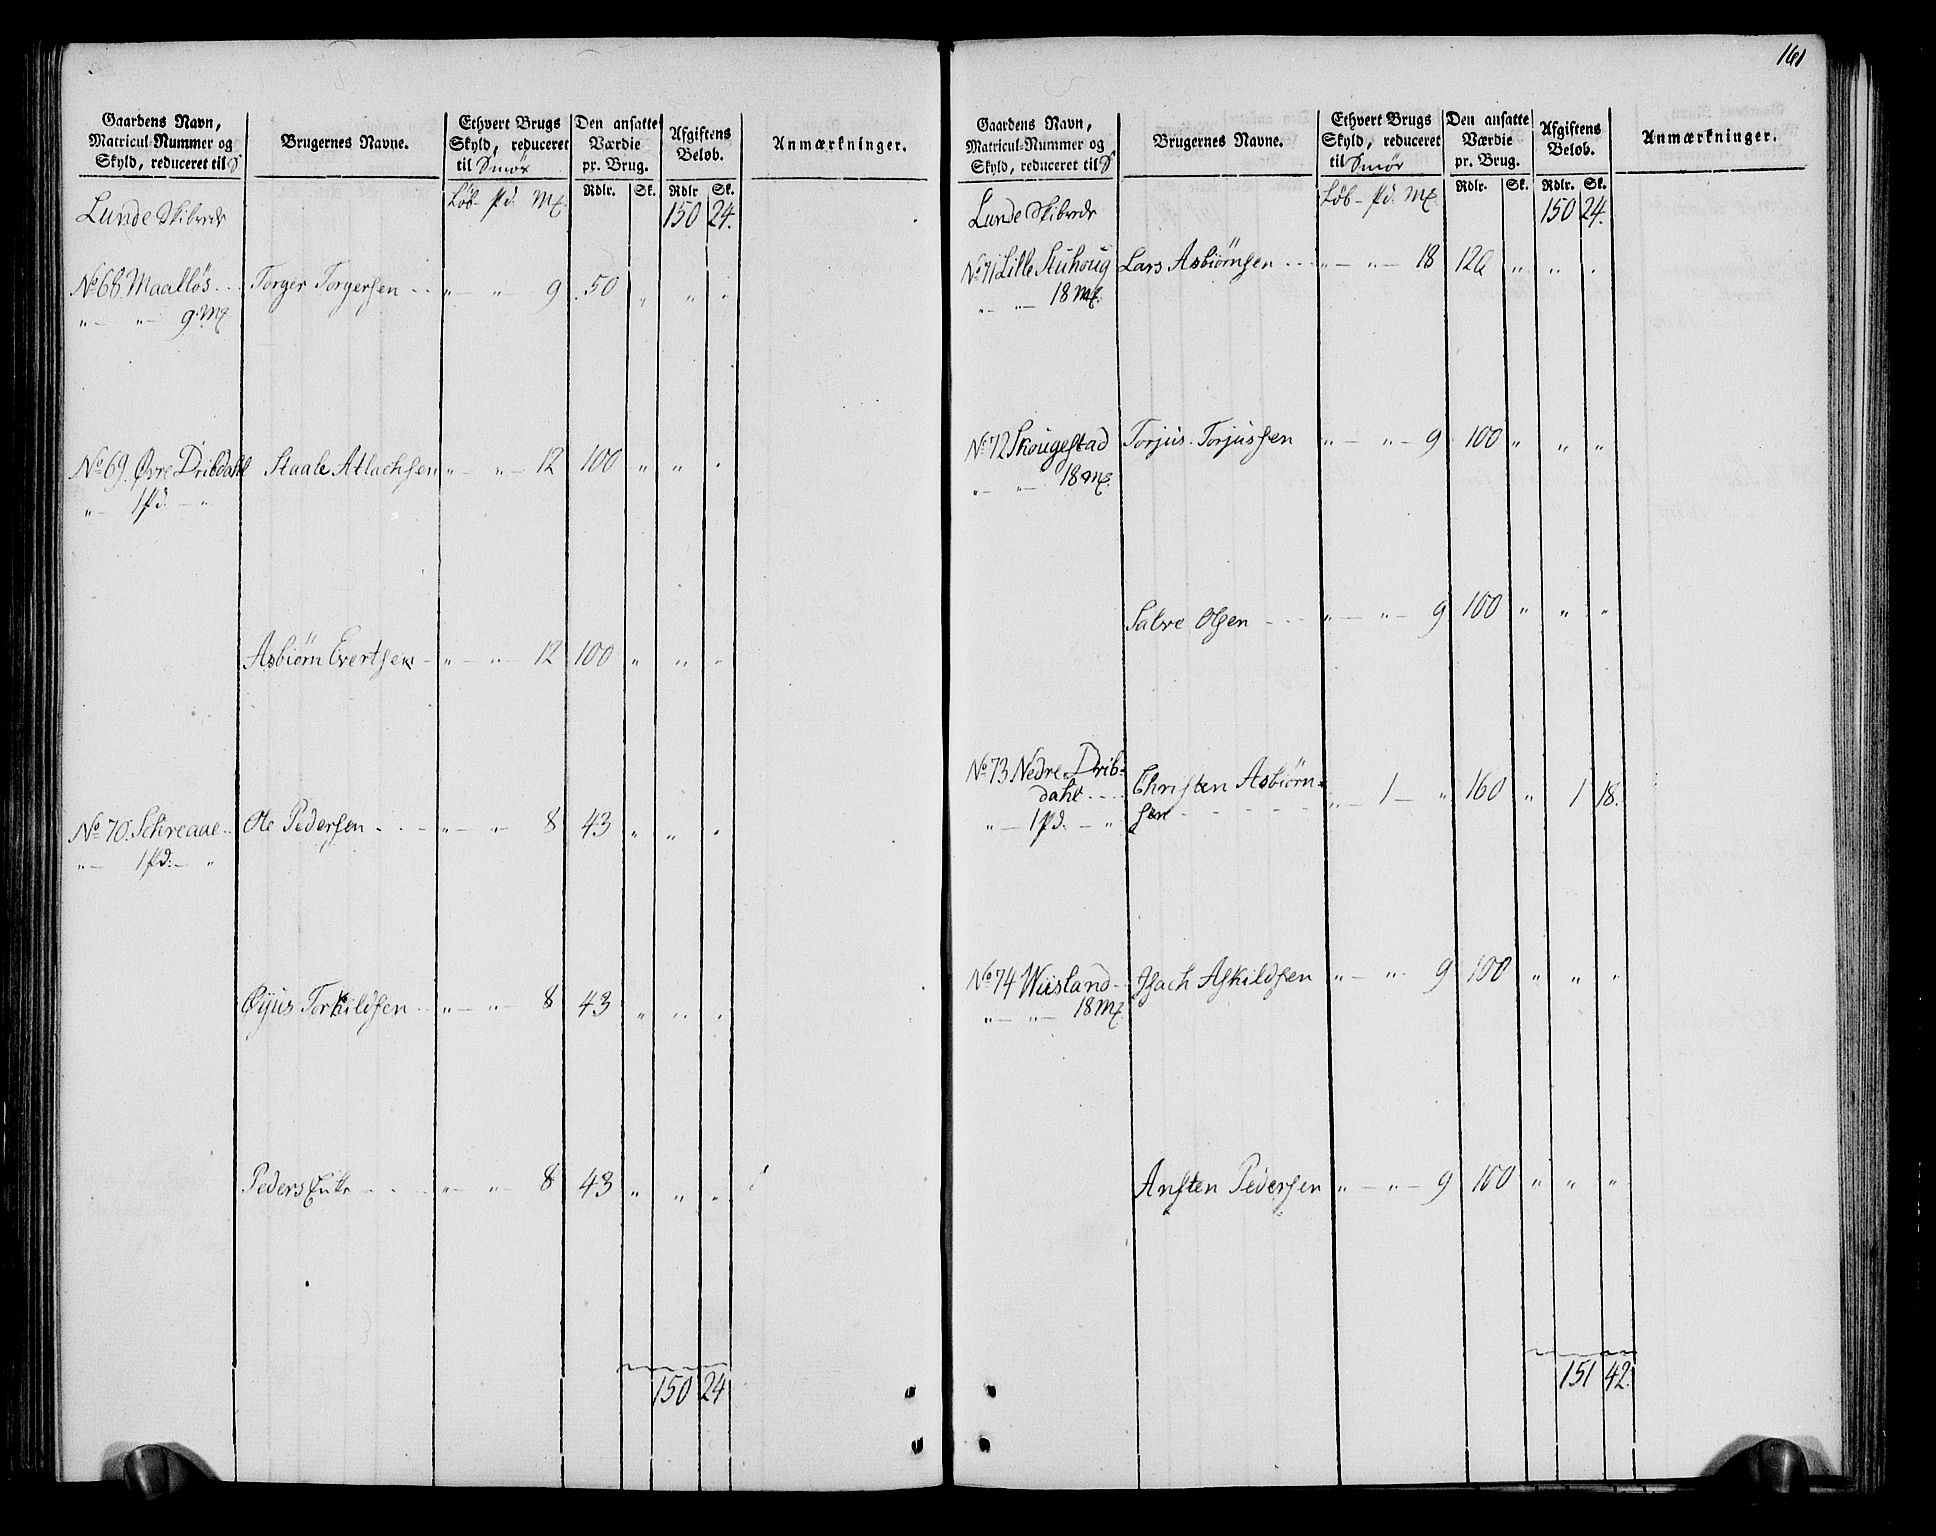 Gaardens Navn,
Matricul-Nummer og
Skyld, reduceret til S
Brugernes Navne.
Ethvert Brugs
Skyld, reduceret
til Smør
Den ansatte
Værdie
pr. Brug.
Afgiftens
Beløb.
Anmærkninger.
Løb - Pd. Mk.
Rdlr. Sk. Rdlr Sk.
Lunde Skibrede 150 24.
No 68. Maalløs .. Torger Torgersen .. „ — „ — 9 50 „ „ „
„ — „ — 9 Mk
No 69. Øvre Dribdahl Staale Atlachsen „ — „ — 12 100 „ „ „
„ — 1 Pd. — „
Asbiørn Evertsen - „ — „ — 12 100 „ „ „
No 70. Schreaae .. Ole Pedersen ... „ — „ — 8 43 „ „ „
„ — 1 Pd: — „
Torkildsen .. „ — „ — 8 43 „ „ „
Peders Enke ... „ — „ — 8 43 „ „ „
150 24
161
Gaardens Navn,
Matricul-Nummer og
Skyld, reduceret til S
Brugernes Navne.
Ethvert Brugs
Skyld, reduceret
til Smør
Den ansatte
Værdie
pr. Brug.
Afgiftens
Beløb.
Anmærkninger.
Løb - Pd. Mk.
Rdlr. Sk. Rdlr. Sk.
Lunde Skibrede 150 24.
No 71 Lille Lars Asbiørnsen ... „ — „ — 18 120 „ „ „
„ — „ — 18 Mk.
No 72 Skougestad Torjus Torjussen „ — „ — 9 100 „ „ „
„ — „ — 18 Mk.
Salve Olsen ... „ — „ — 9 100 „ „ „
No 73 Nedre Drib=
dahl .... Christen Asbiørn=
„ — 1 Pd. — „ sen - „ — 1 — „ 160 „ 1 18.
No 74 Wiisland - Isach Askildsen „ — „ — 9 100 „ „ „
„ — „ — 18 Mk
Ansten Pedersen „ — „ — 9 100 „ „ „
151 42.